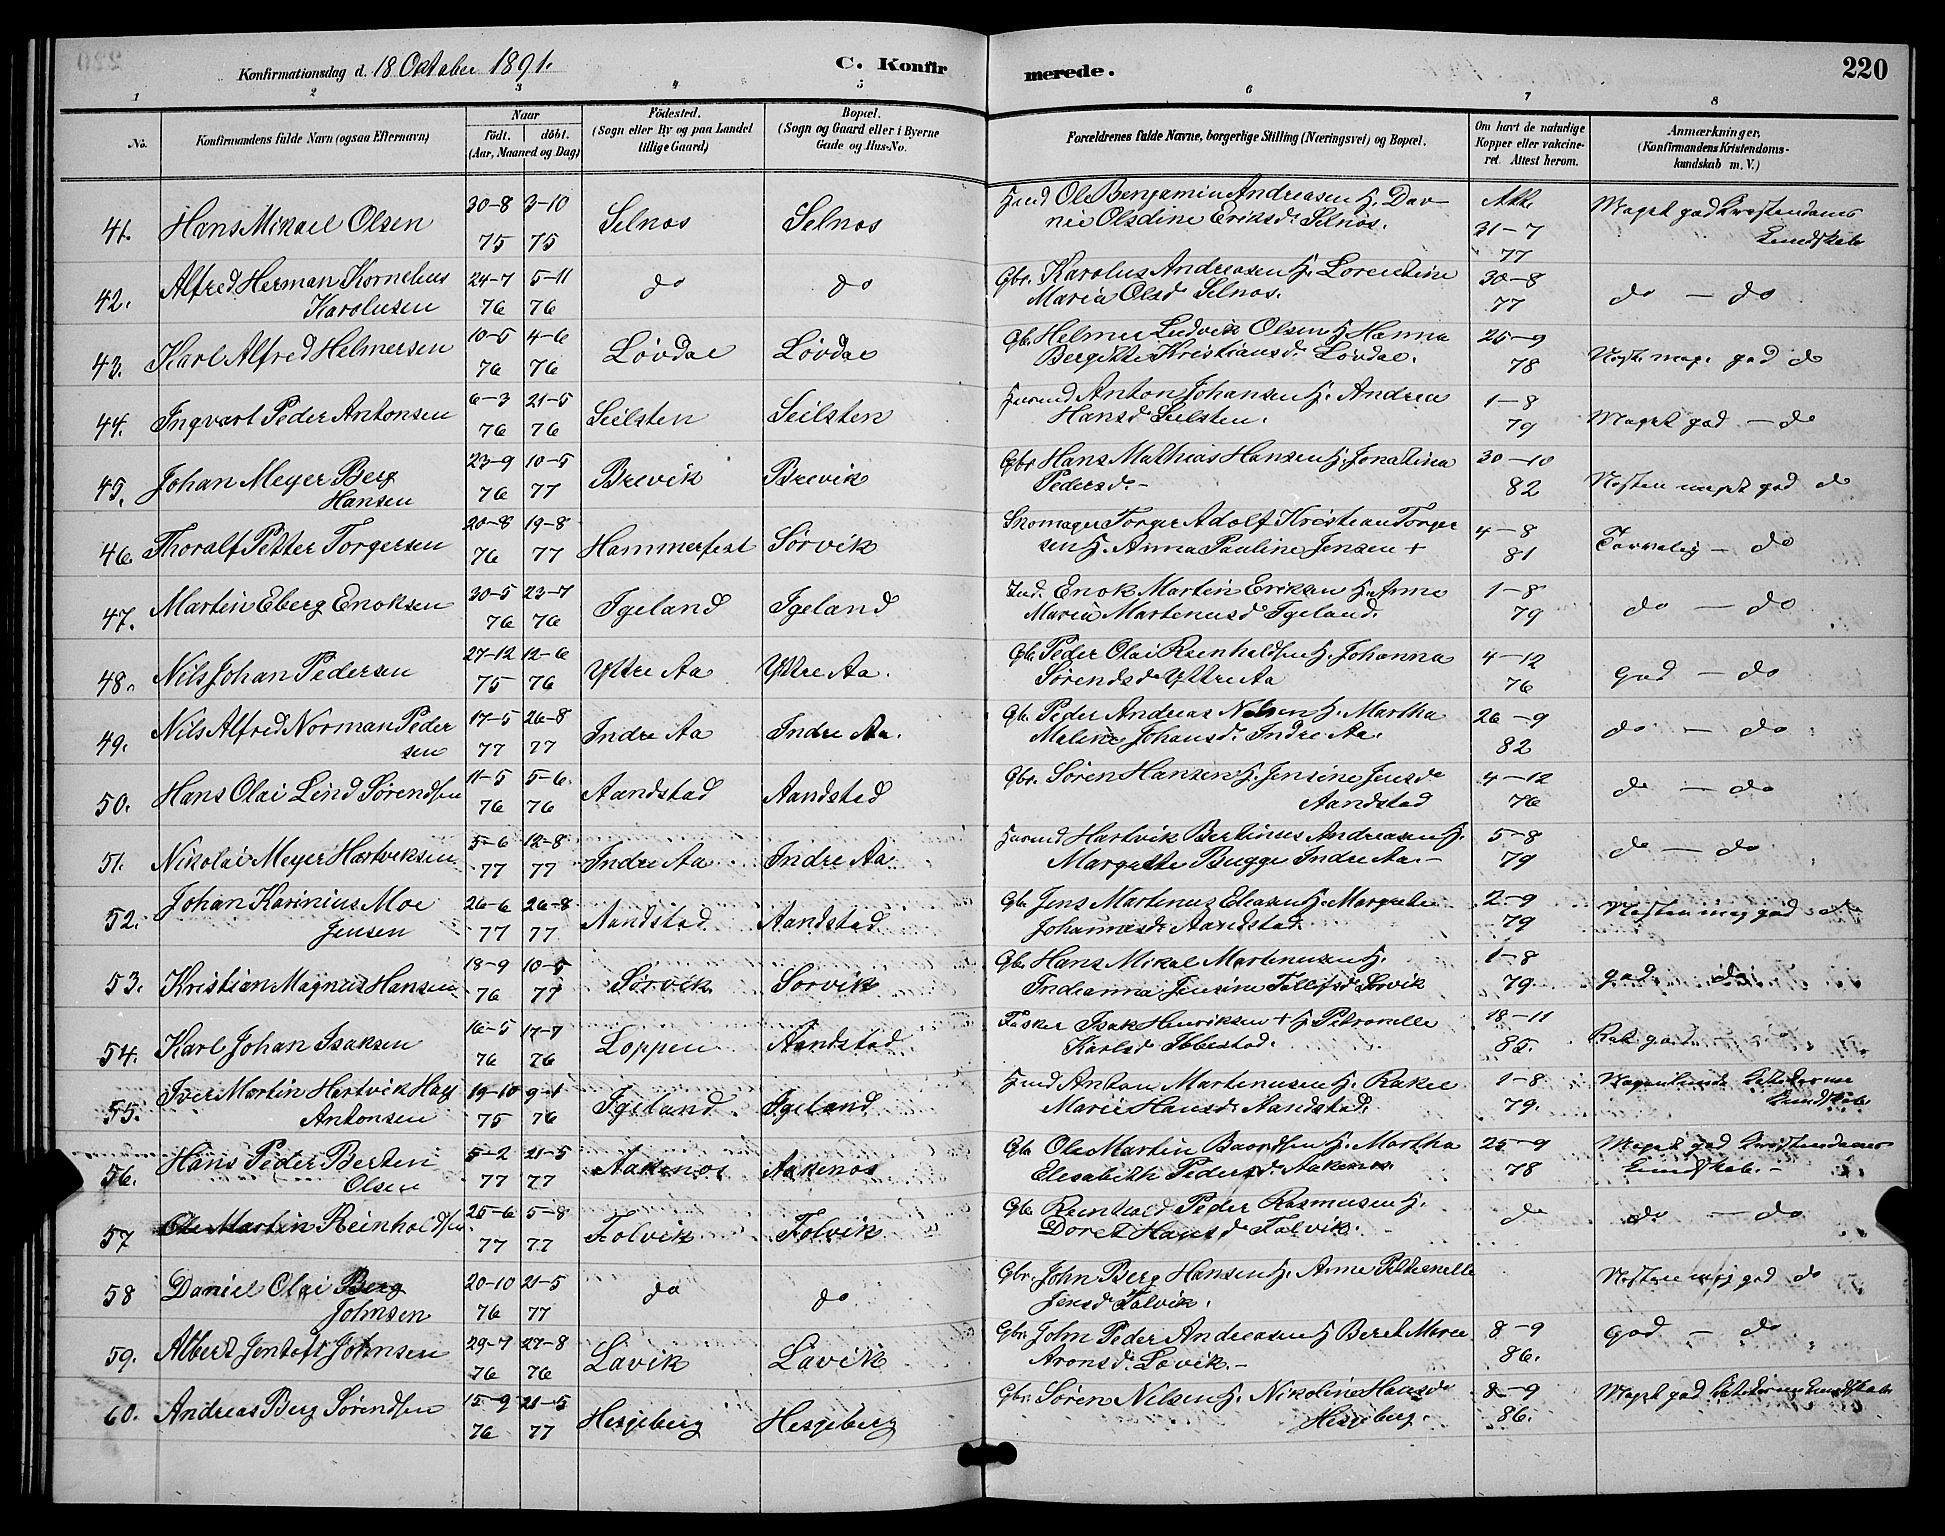 Konfirmationsdag d. 18 October 1891.
C. Konfirmerede.
220
1 2 3 4 5 6 7 8
No. Konfirmandens fulde Navn (ogsaa Efternavn) Naar födt. döbt. (Aar, Maaned og Dag) Födested. (Sogn eller By og paa Landet tillige Gaard) Bopæl. (Sogn og Gaard eller i Byerne Gade og Hus-No. Forældrenes fulde Navne, borgerlige Stilling (Næringsvei) og Bopæl. Om havt de naturlige Kopper eller vakcineret Attest herom. Anmærkninger, (Konfirmandens Kristendomskundskab m. V.)
41. Hans Mikael Olsen 30-8 75 3-10 75 Selnos Selnos Ole Benjamin Andreasen H. Olsdine Eriksd. Selnos. Att. 31-7 77 Maget god Kristendoms Kundskab
42. Alfred Herman Kornelius Karolusen 24-7 76 5-11 76 do do Gbr. Karolus Andreasen H. Lorentine Maria Olsd Selnos. 30-8 77 do - do
43. Karl Alfred Helmersen 10-5 76 4-6 76 Lövdal Lövdal Gb. Helmer Ludvik Olsen H. Hanna Bergitte Kristiansd. Lövdal. 25-9 78 god do
44. Ingvart Peder Antonsen 6-3 76 21-5 76 Seilsten Seilsten Anton Johansen H. Andrea Hansd Seilsten. 1-8 79 Maget god - do
45. Johan Meyer Berg Hansen 23-9 76 10-5 77 Brevik Brevik Gbr Hans Mathias Hansen H. Jonetina Pedersd. - 30-10 82 Nesten maget god do
46. Thoralf Petter Torgersen 20-8 76 19-8 77 Hammerfest Sörvik Skomager Torger Adolf Kristian Torgersen H. Anna Pauline Jensen + 4-8 81 Tarvelig - do
47. Martin Eberg Enoksen 30-5 76 23-7 76 Igeland Igeland Ind. Enok Martin Eriksen H. Anne Maria Martenusd Igeland. 1-8 79 do - do
48. Nils Johan Pedersen 27-12 75 12-6 76 Yttre Aa Yttre Aa. Gb. Peder Olai Reinholdsen H. Johanna Sörendsd. Yttre Aa 4-12 76 god - do
49. Nils Alfred Norman Pedersen 17-5 77 26-8 77 Indre Aa Indre Aa. Gb. Peder Andreas Nelsen H. Martha Meline Johansd. Indre Aa. 26-9 82 do - do
50. Hans Olai Lind Sörendsen 11-5 76 5-6 76 Aandstad Aandstad Gbr. Sören Hansen H. Jensine Jensd. Aandstad 4-12 76 do - do
51. Nikolai Meyer Hartviksen 5-6 77 12-8 77 Indre Aa Indre Aa Hartvik Bertinus Andreasen H. Margrethe Bugge Indre Aa. - 5-8 79 do - do
52. Johan Karinius Moe Jensen 26-6 77 26-8 77 Aandstad Aandstad Gb. Jens Martinus Eliasen H. Margrete Johannesd. Aandstad. 2-9 79 Nesten mag god do
53. Kristian Magnus Hansen 18-9 76 10-5 77 Sörvik Sorvik Gb. Hans Mikal Martinusen H. Indianna Jensine Tellefsd Sörvik 1-8 79. god do
54. Karl Johan Isaksen 16-5 76 17-7 76 Loppen Aandstad Fisker Isak Henriksen + H. Petronelle Karlsd Ibbestad. 18-11 85. god
55. Iver Martin Hartvik Hay Antonsen 19-10 75 9-1 76 Igeland Igeland Anton Martenusen H. Rakel Marie Hansd. Aandstad. 1-8 79. Kundskab.
56. Hans Peder Berten Olsen 5-2 77 21-5 77 Aakenos Aakenos Gb Ole Martin Baardsen H. Martha Elesabeth Pedersd. Aakenos 25-9 78 Maget god Kristendoms Kundskab. -
57 Ole Martin Reinholdsen 25-6 77 5-8 77 Folvik Folvik Gb Reinhold Peder Rasmusen H. Doret Hansd Folvik. do do - do
58 Daniel Olai Berg Johnsen 20-10 76 21-5 77 do do Gbr. John Berg Hansen H. Anne Petternelle Jensd Folvik. Nesten mag god do
59. Albert Jentoft Johnsen 29-7 76 27-8 76 Lavik Lavik Gbr. John Peder Andreasen H Beret Marie Aronsd. Lovik. - 8-9 86. god - do
60. Andreas Berg Sörendsen 15-9 76 21-5 77 Hesjeberg Hesjeberg Gbr. Sören Nilsen H. Nikoline Hansd. Hesjeberg. 8-9 86. Maget god Kundskab